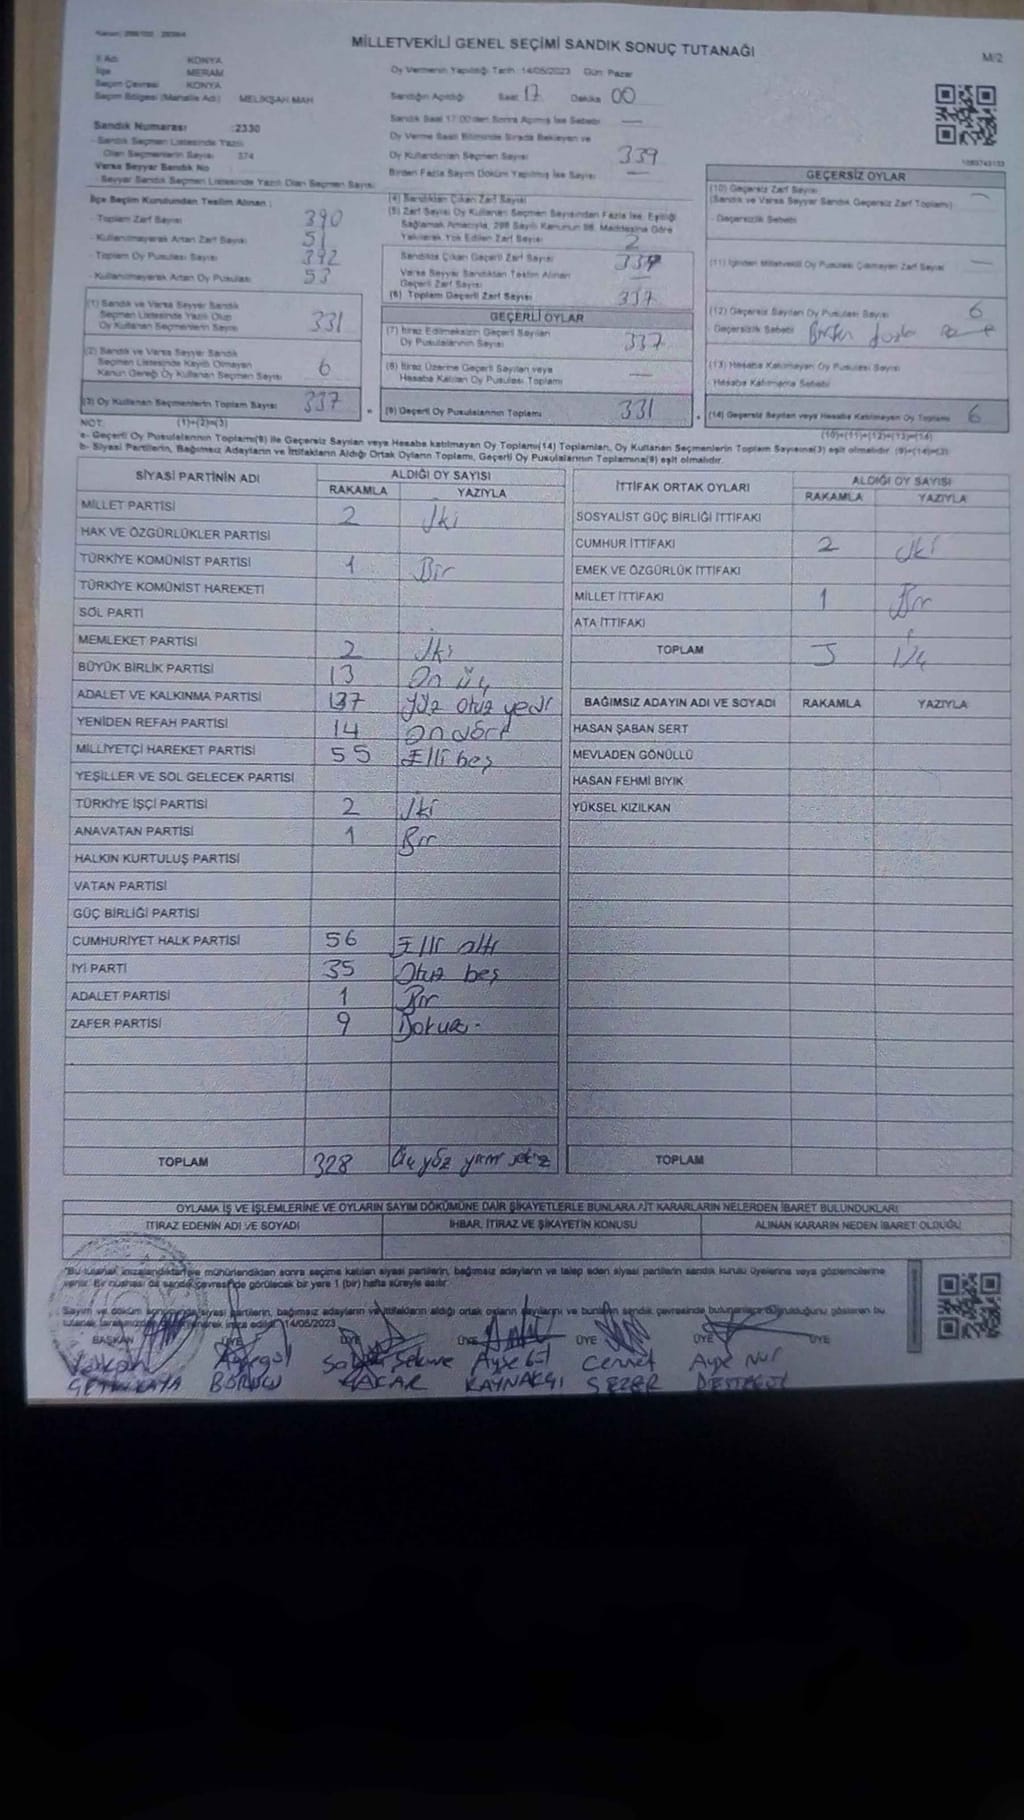 MİLLETVEKİLİ GENEL SEÇİMİ SANDIK SONUÇ TUTANAĞI
M/2
İl Adı KONYA
İlçe MERAM
Seçim Çevresi KONYA
Seçim Bölgesi (Mahalle Adı) MELİKŞAH MAH
Sandık Numarası :2330
Sandık Seçmen Listesinde Yazılı
Olan Seçmenlerin Sayısı 374
Varsa Seyyar Sandık No
Seyyar Sandık Seçmen Listesinde Yazılı Olan Seçmen Sayısı
Oy Vermenin Yapıldığı Tarih :14/05/2023 Gün: Pazar
Sandığın Açıldığı Saat 17 Dakika 00
Sandık Saat 17:00'den Sonra Açılmış İse Sebebi —
Oy Verme Saati Bitiminde Sırada Bekleyen ve
Oy Kullandırılan Seçmen Sayısı 339
Birden Fazla Sayım Döküm Yapılmış İse Sayısı —
İlçe Seçim Kurulundan Teslim Alınan :
- Toplam Zarf Sayısı 390
- Kullanılmayarak Artan Zarf Sayısı 51
- Toplam Oy Pusulası Sayısı 392
- Kullanılmayarak Artan Oy Pusulası 53
(1) Sandık ve Varsa Seyyar Sandık
Seçmen Listesinde Yazılı Olup
Oy Kullanan Seçmenlerin Sayısı 331
(2) Sandık ve Varsa Seyyar Sandık
Seçmen Listesinde Kayıtlı Olmayan
Kanun Gereği Oy Kullanan Seçmen Sayısı 6
(3) Oy Kullanan Seçmenlerin Toplam Sayısı 337
(4) Sandıktan Çıkan Zarf Sayısı
(5) Zarf Sayısı Oy Kullanan Seçmen Sayısından Fazla İse, Eşitliği
Sağlamak Amacıyla, 298 Sayılı Kanunun 98. Maddesine Göre
Yakılarak Yok Edilen Zarf Sayısı 2
Sandıkta Çıkan Geçerli Zarf Sayısı 337
Varsa Seyyar Sandıktan Teslim Alınan
Geçerli Zarf Sayısı —
(6) Toplam Geçerli Zarf Sayısı 337
GEÇERLİ OYLAR
(7) İtiraz Edilmeksizin Geçerli Sayılan
Oy Pusulalarının Sayısı 337
(8) İtiraz Üzerine Geçerli Sayılan veya
Hesaba Katılan Oy Pusulası Toplamı —
(9) Geçerli Oy Pusulalarının Toplamı 331
GEÇERSİZ OYLAR
(10) Geçersiz Zarf Sayısı
(Sandık ve Varsa Seyyar Sandık Geçersiz Zarf Toplamı) —
- Geçersizlik Sebebi
(11) İçinden Milletvekili Oy Pusulası Çıkmayan Zarf Sayısı —
(12) Geçersiz Sayılan Oy Pusulası Sayısı 6
- Geçersizlik Sebebi
(13) Hesaba Katılmayan Oy Pusulası Sayısı
- Hesaba Katılmama Sebebi
(14) Geçersiz Sayılan veya Hesaba Katılmayan Oy Toplamı 6
NOT: (1)+(2)=(3) (10)+(11)+(12)+(13)=(14)
a- Geçerli Oy Pusulaları Toplamı(9) ile Geçersiz Sayılan veya Hesaba katılmayan Oy Toplamı(14) Toplamları, Oy Kullanan Seçmenlerin Toplam Sayısına(3) eşit olmalıdır. (9)+(14)=(3)
b- Siyasi Partilerin, Bağımsız Adayların ve İttifakların Aldığı Ortak Oyların Toplamı, Geçerli Oy Pusulalarının Toplamına(9) eşit olmalıdır.
SİYASİ PARTİNİN ADI ALDIĞI OY SAYISI
RAKAMLA YAZIYLA
MİLLET PARTİSİ 2 İki
HAK VE ÖZGÜRLÜKLER PARTİSİ
TÜRKİYE KOMÜNİST PARTİSİ 1 Bir
TÜRKİYE KOMÜNİST HAREKETİ
SOL PARTİ
MEMLEKET PARTİSİ 2 İki
BÜYÜK BİRLİK PARTİSİ 13 On üç
ADALET VE KALKINMA PARTİSİ 137 Yüz otuz yedi
YENİDEN REFAH PARTİSİ 14 On dört
MİLLİYETÇİ HAREKET PARTİSİ 55 Elli beş
YEŞİLLER VE SOL GELECEK PARTİSİ
TÜRKİYE İŞÇİ PARTİSİ 2 İki
ANAVATAN PARTİSİ 1 Bir
HALKIN KURTULUŞ PARTİSİ
VATAN PARTİSİ
GÜÇ BİRLİĞİ PARTİSİ
CUMHURİYET HALK PARTİSİ 56 Elli altı
İYİ PARTİ 35 Otuz beş
ADALET PARTİSİ 1 Bir
ZAFER PARTİSİ 9 Dokuz
TOPLAM 328 Üç yüz yirmi sekiz
İTTİFAK ORTAK OYLARI ALDIĞI OY SAYISI
RAKAMLA YAZIYLA
SOSYALİST GÜÇ BİRLİĞİ İTTİFAKI
CUMHUR İTTİFAKI 2 İki
EMEK VE ÖZGÜRLÜK İTTİFAKI
MİLLET İTTİFAKI 1 Bir
ATA İTTİFAKI
TOPLAM 3 Üç
BAĞIMSIZ ADAYIN ADI VE SOYADI RAKAMLA YAZIYLA
HASAN ŞABAN SERT
MEVLADEN GÖNÜLLÜ
HASAN FEHMİ BIYIK
YÜKSEL KIZILKAN
TOPLAM
OYLAMA İŞ VE İŞLEMLERİNE VE OYLARIN SAYIM DÖKÜMÜNE DAİR ŞİKAYETLERLE BUNLARA AİT KARARLARIN NELERDEN İBARET BULUNDUKLARI
İTİRAZ EDENİN ADI VE SOYADI İHBAR, İTİRAZ VE ŞİKAYETİN KONUSU ALINAN KARARIN NEDEN İBARET OLDUĞU
"Bu tutanak, imzalandıktan ve mühürlendikten sonra seçime katılan siyasi partilerin, bağımsız adayların ve talep eden siyasi partilerin sandık kurulu üyelerine veya gözlemcilerine
verilir. Bir nüshası da sandık çevresinde görülecek bir yere 1 (bir) hafta süreyle asılır.
Sayım ve döküm sonucunda siyasi partilerin, bağımsız adayların ve ittifakların aldığı ortak oyların sayılarını ve bunların sandık çevresinde bulunanlara duyurulduğunu gösteren bu
14/05/2023
BAŞKAN ÜYE ÜYE ÜYE ÜYE ÜYE ÜYE
Ayşegül Ayşe Gül Cennet Ayşe Nur
BORUCU ACAR KAYNAKÇI SEZER